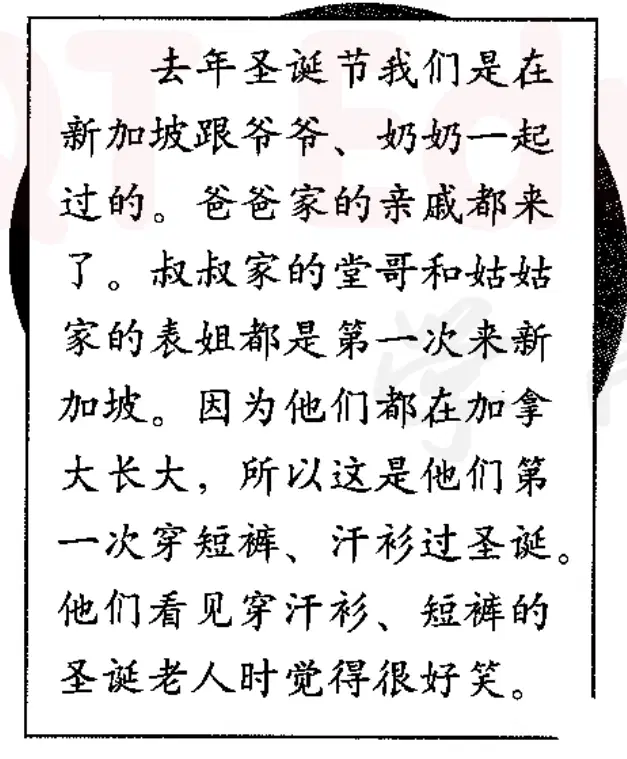 去年圣诞节我们是在
新加坡跟爷爷、奶奶一起
过的。爸爸家的亲戚都来
了。叔叔家的堂哥和姑姑
家的表姐都是第一次来新
加坡。因为他们都在加拿
大长大，所以这是他们第
一次穿短裤、汗衫过圣诞。
他们看见穿汗衫、短裤的
圣诞老人时觉得很好笑。